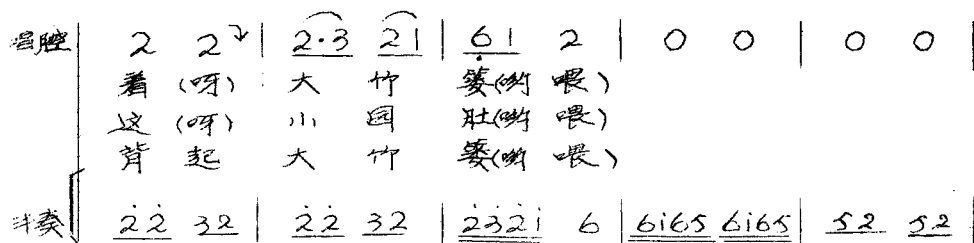 唱腔 2 2 | 2·3 21 | 61 2 | 0 0 | 0 0 |
着 (呀) 大 竹 篓(哟 喂)
这 (呀) 小 园 肚(哟 喂)
背 起 大 竹 篓(哟 喂)
伴奏 22 32 | 22 32 | 2321 6 | 6165 6165 | 52 52 |